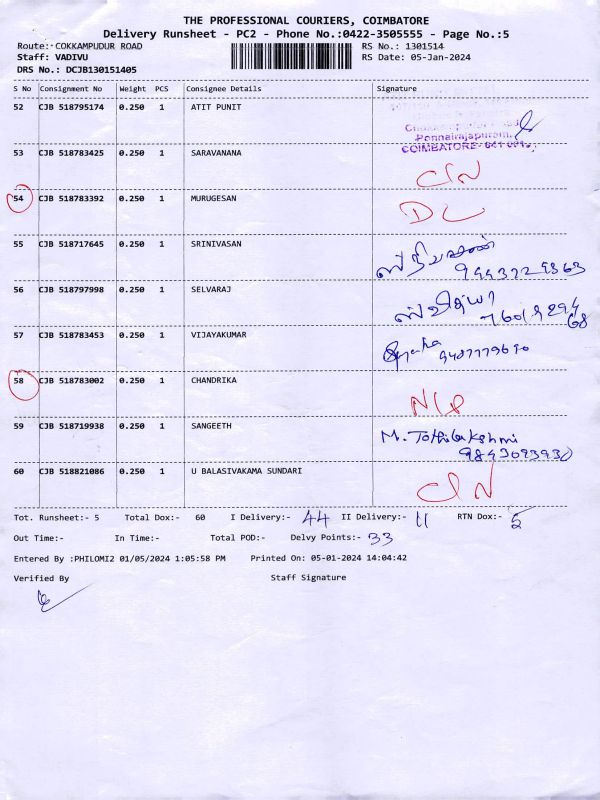 THE PROFESSIONAL COURIERS, COIMBATORE
Delivery Runsheet - PC2 - Phone No.:0422-3505555 - Page No.:5
Route:- COKKAMPUDUR ROAD RS No.: 1301514
Staff: VADIVU RS Date: 05-Jan-2024
DRS No.: DCJB130151405
S No Consignment No Weight PCS Consignee Details Signature
52 CJB 518795174 0.250 1 ATIT PUNIT
Ponnairajapuram,
COIMBATORE- 641 001.
53 CJB 518783425 0.250 1 SARAVANANA
C/N
54 CJB 518783392 0.250 1 MURUGESAN
DL
55 CJB 518717645 0.250 1 SRINIVASAN
56 CJB 518797998 0.250 1 SELVARAJ
57 CJB 518783453 0.250 1 VIJAYAKUMAR
58 CJB 518783002 0.250 1 CHANDRIKA
N/P
59 CJB 518719938 0.250 1 SANGEETH
M. Jothilakshmi
60 CJB 518821086 0.250 1 U BALASIVAKAMA SUNDARI
C/N
Tot. Runsheet:- 5 Total Dox:- 60 I Delivery:- 44 II Delivery:- 11 RTN Dox:- 5
Out Time:- In Time:- Total POD:- Delvy Points:- 33
Entered By :PHILOMI2 01/05/2024 1:05:58 PM Printed On: 05-01-2024 14:04:42
Verified By Staff Signature